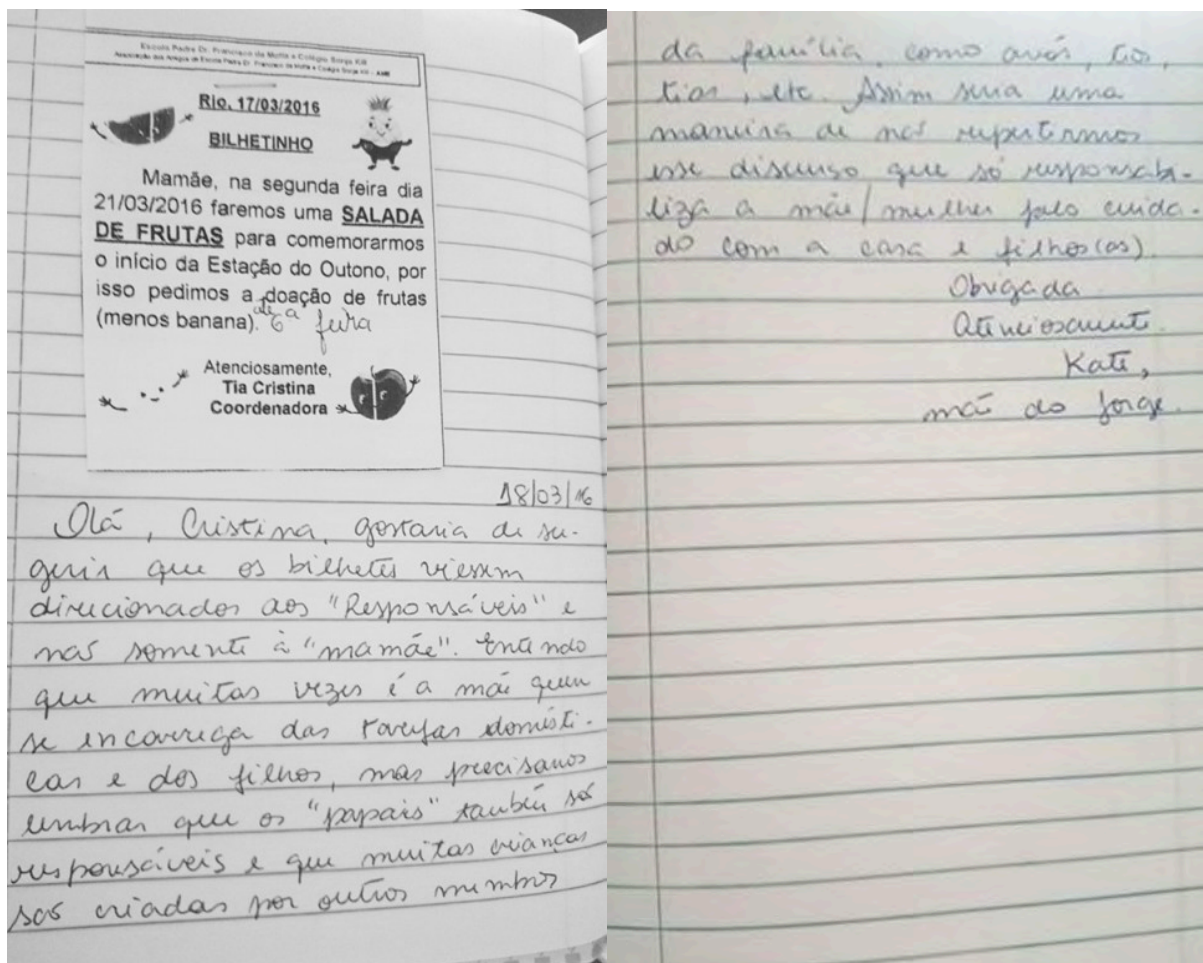 Escola Padre Dr. Francisco da Motta e Colégio Sonja Kill
Associação dos Amigos da Escola Padre Dr. Francisco da Motta e Colégio Sonja Kill - AME
Rio, 17/03/2016
BILHETINHO
Mamãe, na segunda feira dia
21/03/2016 faremos uma SALADA
DE FRUTAS para comemorarmos
o início da Estação do Outono, por
isso pedimos a doação de frutas
(menos banana). até 6ª feira
Atenciosamente,
Tia Cristina
Coordenadora
18/03/16
Olá, Cristina, gostaria de su-
gerir que os bilhetes viessem
direcionados aos "Responsáveis" e
não somente à "mamãe". Entendo
que muitas vezes é a mãe quem
se encarrega das tarefas domésti-
cas e dos filhos, mas precisamos
lembrar que os "papais" também são
responsáveis e que muitas crianças
são criadas por outros membros
da família, como avós, tios,
tias, etc. Assim seria uma
maneira de não repetirmos
esse discurso que só responsabi-
liza a mãe/mulher pelo cuida-
do com a casa e filhos(as).
Obrigada
Atenciosamente.
Kate,
mãe do Jorge.